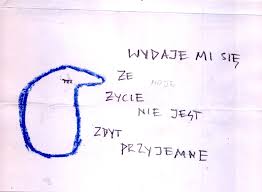 WYDAJE MI SIĘ
ZE MOJE
ZYCIE
NIE JEST
ZBYT
PRZYJEMNE